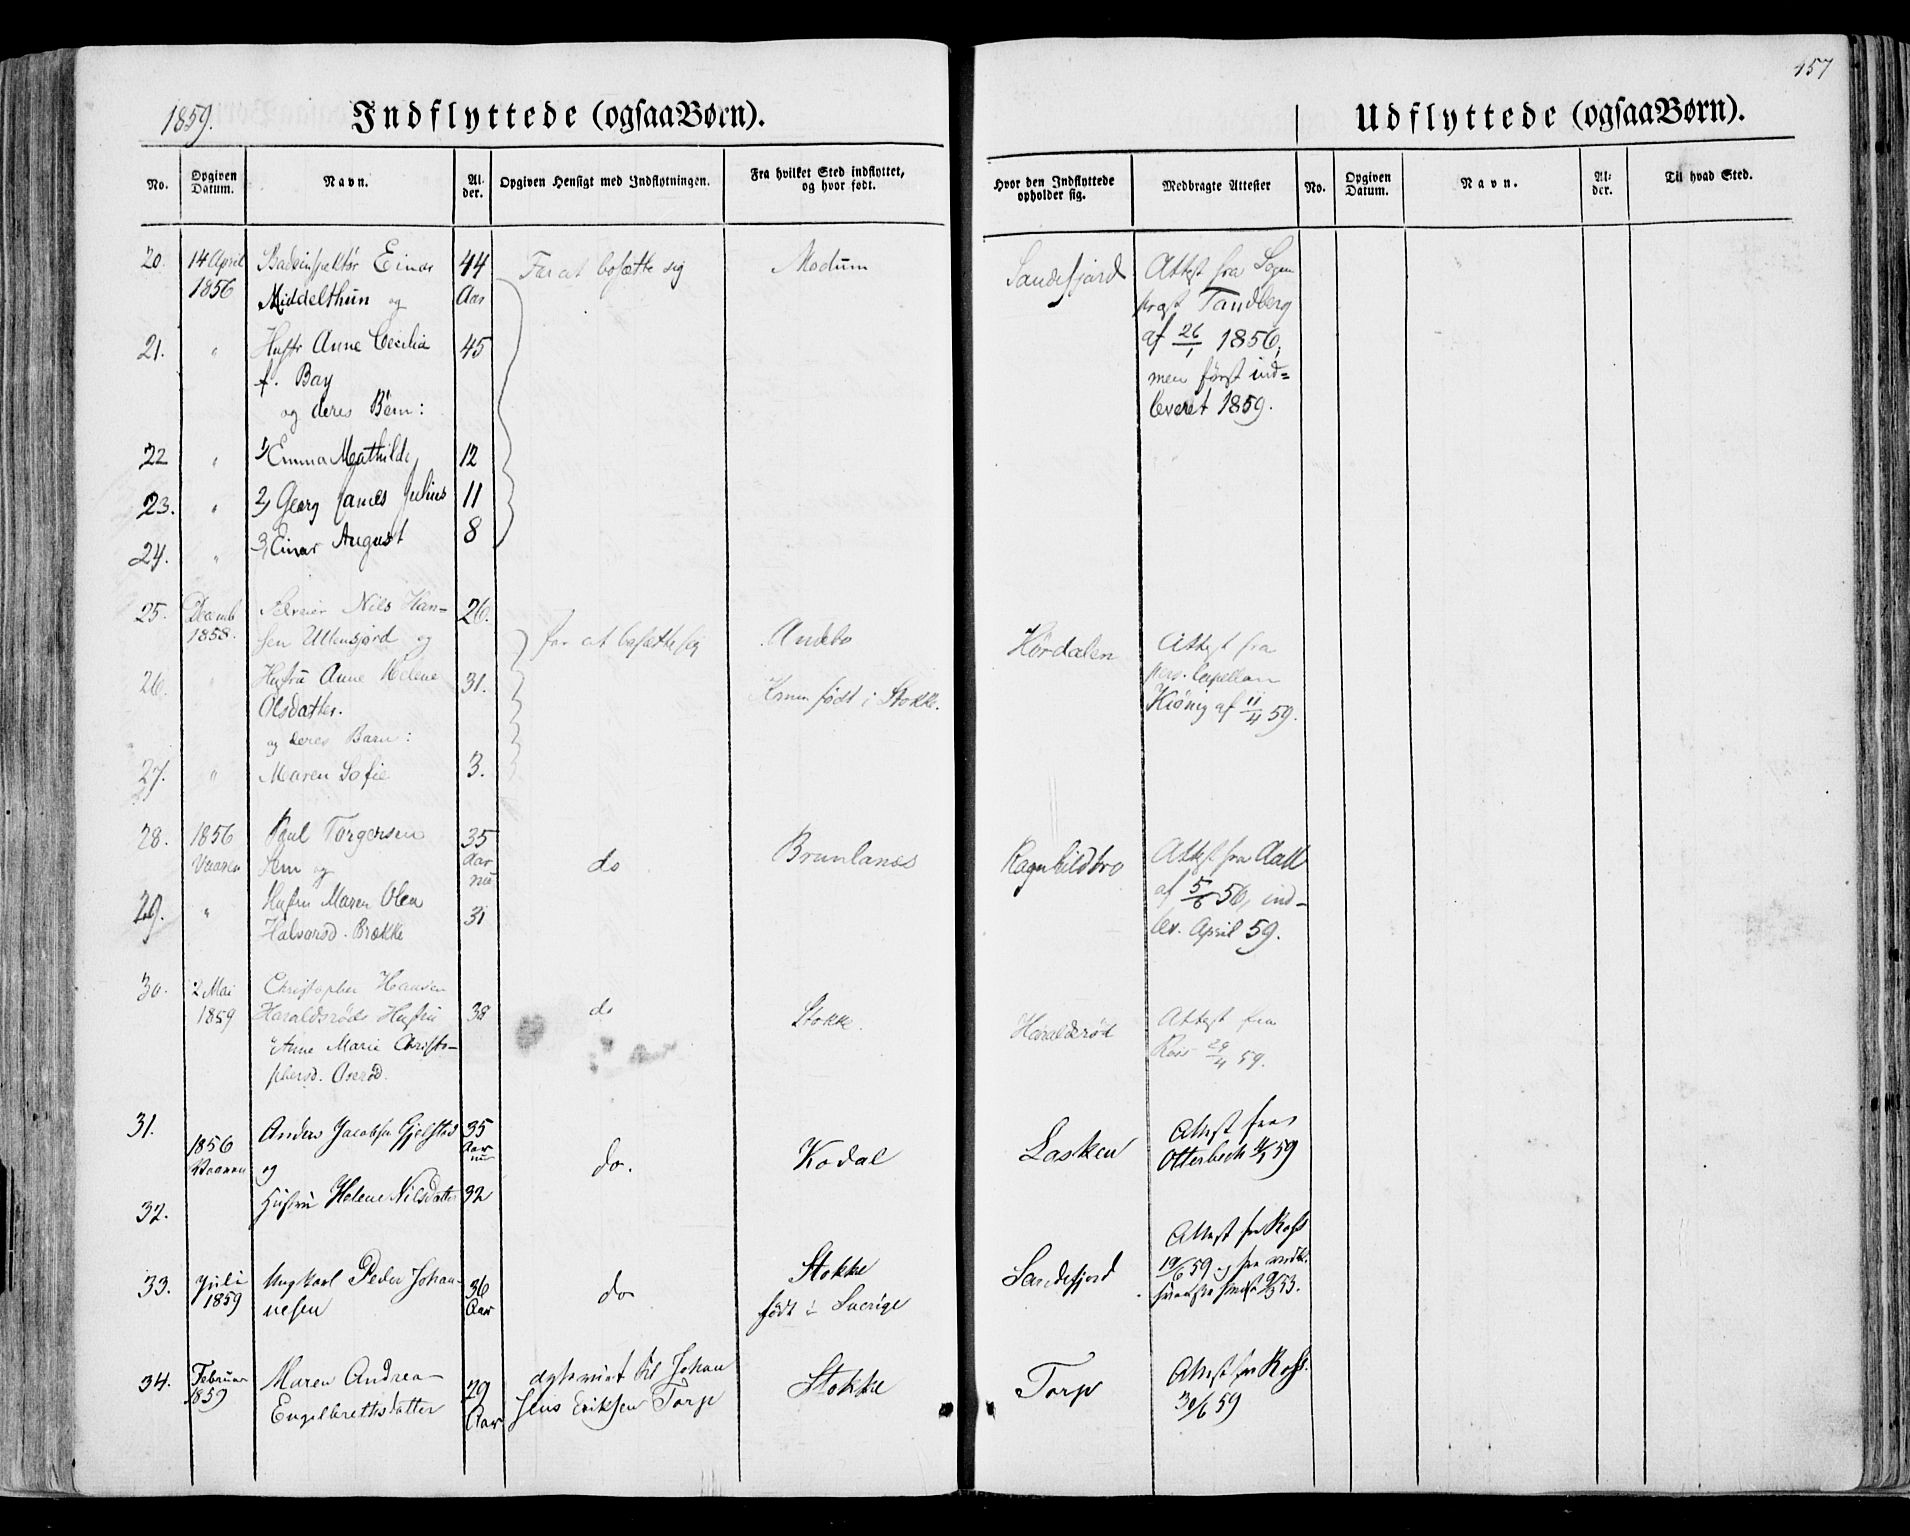 457
1859. Indflyttede (ogsaa Børn). Udflyttede (ogsaa Børn).
No. Opgiven Datum. Navn. Al-der. Opgiven Hensigt med Indflytningen. Fra hvilket Sted indflyttet, og hvor født. Hvor den Indflyttede opholder sig. Medbragte Attester No. Opgiven Datum. Navn. Al-der. Til hvad Sted.
20. 14 April Badeinspektör Einar 44 For at bosætte sig Modum Sandefjord Attest fra Sogne
1856 Middelthun og Aar prest Tandberg
af 26/1 1856,
21. " Hustr Anne Cecilia 45 men først ind=
f. Bay leveret 1859.
og deres Börn:
22 " 1) Emma Mathilde 12
23. " 2) Georg James Julius 11
24. " 3) Einar August 8
25. Decemb Nils Han- 26. for at bosætte sig Andebo Hørdalen Attest fra
1858. sen og pers. Capellan
26. " Hustru Anne Helene 31. Konen født i Stokke. Kiönig af 11/4 59.
Olsdatter.
og deres Barn:
27. " Maren Sofie 3.
28. 1856 Poul Torgersen 35 do Brunlanes Ragnhildbro Attest fra Aall
Vaaren Sem og Aar nu af 5/6 56, ind-
29. " Hustru Maren Olea 31 lev. April 59.
Halvorsd. Brække
30. 2 Mai Christopher Hansen do Stokke. Haraldsrød Attest fra
1859 Haraldsröds Hustru 38 29/4 59.
Anne Marie Christo-
phersd. Aserød.
31. 1856 Anders Jacobsen Gjelstad 35 do. Kodal Lasken Attest fra
Vaaren og Aar nu Otterbech 59
32. Hustru Helene Nilsdatter 32
33. Juli Ungkarl Peder Johan- 36 do Stokke Sandefjord Attest fra Ross
1859 nesen Aar født i Sverige 19/6 59 og fra
53.
34. Februar Maren Andrea 29 til Johan Stokke Torp Attest fra Ross.
1859 Engelbrettsdatter Aar Jens Eriksen Torp 30/6 59